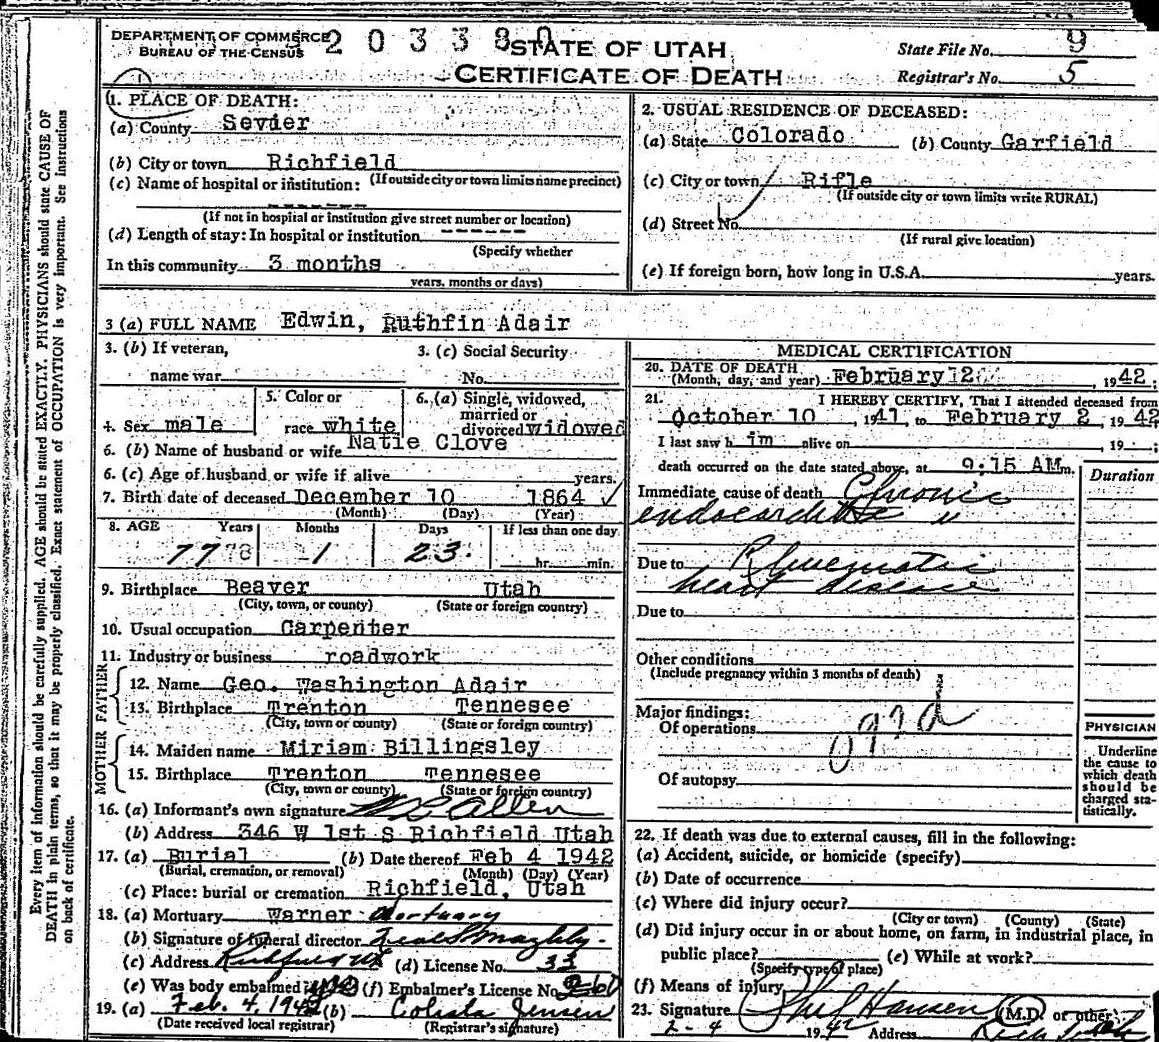 DEPARTMENT OF COMMERCE
BUREAU OF THE CENSUS
2 0 3 3 8 0
STATE OF UTAH
CERTIFICATE OF DEATH
State File No. 9
Registrar's No. 5
Every item of information should be carefully supplied. AGE should be stated EXACTLY. PHYSICIANS should state CAUSE OF
DEATH in plain terms, so that it may be properly classified. Exact statement of OCCUPATION is very important. See instructions
on back of certificate.
1. PLACE OF DEATH:
(a) County Sevier
(b) City or town Richfield
(If outside city or town limits name precinct)
(c) Name of hospital or institution:
(If not in hospital or institution give street number or location)
(d) Length of stay: In hospital or institution
(Specify whether
In this community 3 months
years, months or days)
2. USUAL RESIDENCE OF DECEASED:
(a) State Colorado (b) County Garfield
(c) City or town Rifle
(If outside city or town limits write RURAL)
(d) Street No.
(If rural give location)
(e) If foreign born, how long in U.S.A. years.
3 (a) FULL NAME Edwin, Ruthfin Adair
3. (b) If veteran,
name war
3. (c) Social Security
No.
4. Sex male
5. Color or
race white
6. (a) Single, widowed,
married or
divorced widowed
6. (b) Name of husband or wife Natie Clove
6. (c) Age of husband or wife if alive years.
7. Birth date of deceased December 10 1864
(Month) (Day) (Year)
8. AGE Years Months Days If less than one day
77 78 1 23 hr. min.
9. Birthplace Beaver Utah
(City, town, or county) (State or foreign country)
10. Usual occupation Carpenter
11. Industry or business roadwork
FATHER
12. Name Geo. Washington Adair
13. Birthplace Trenton Tennesee
(City, town or county) (State or foreign country)
MOTHER
14. Maiden name Miriam Billingsley
15. Birthplace Trenton Tennesee
(City, town or county) (State or foreign country)
16. (a) Informant's own signature Allen
(b) Address 346 W 1st S Richfield Utah
17. (a) Burial (b) Date thereof Feb 4 1942
(Burial, cremation, or removal) (Month) (Day) (Year)
(c) Place: burial or cremation Richfield, Utah
18. (a) Mortuary Warner Mortuary
(b) Signature of funeral director
(c) Address Richfield Ut (d) License No. 33
(e) Was body embalmed yes (f) Embalmer's License No. 260
19. (a) Feb. 4, 1942 (b) Jensen
(Date received local registrar) (Registrar's signature)
MEDICAL CERTIFICATION
20. DATE OF DEATH
(Month, day, and year) February 2 , 1942.
21. I HEREBY CERTIFY, That I attended deceased from
October 10 , 1941, to February 2, 1942
I last saw h im alive on , 19 ;
death occurred on the date stated above, at 9:15 AM m.
Duration
Immediate cause of death Chronic
endocarditis
Due to Rheumatic
heart disease
Due to
Other conditions
(Include pregnancy within 3 months of death)
Major findings:
Of operations
Of autopsy
PHYSICIAN
Underline
the cause to
which death
should be
charged sta-
tistically.
22. If death was due to external causes, fill in the following:
(a) Accident, suicide, or homicide (specify)
(b) Date of occurrence
(c) Where did injury occur?
(City or town) (County) (State)
(d) Did injury occur in or about home, on farm, in industrial place, in
public place? (e) While at work?
(Specify type of place)
(f) Means of injury
23. Signature Hansen (M.D. or other)
2-4 1942 Address